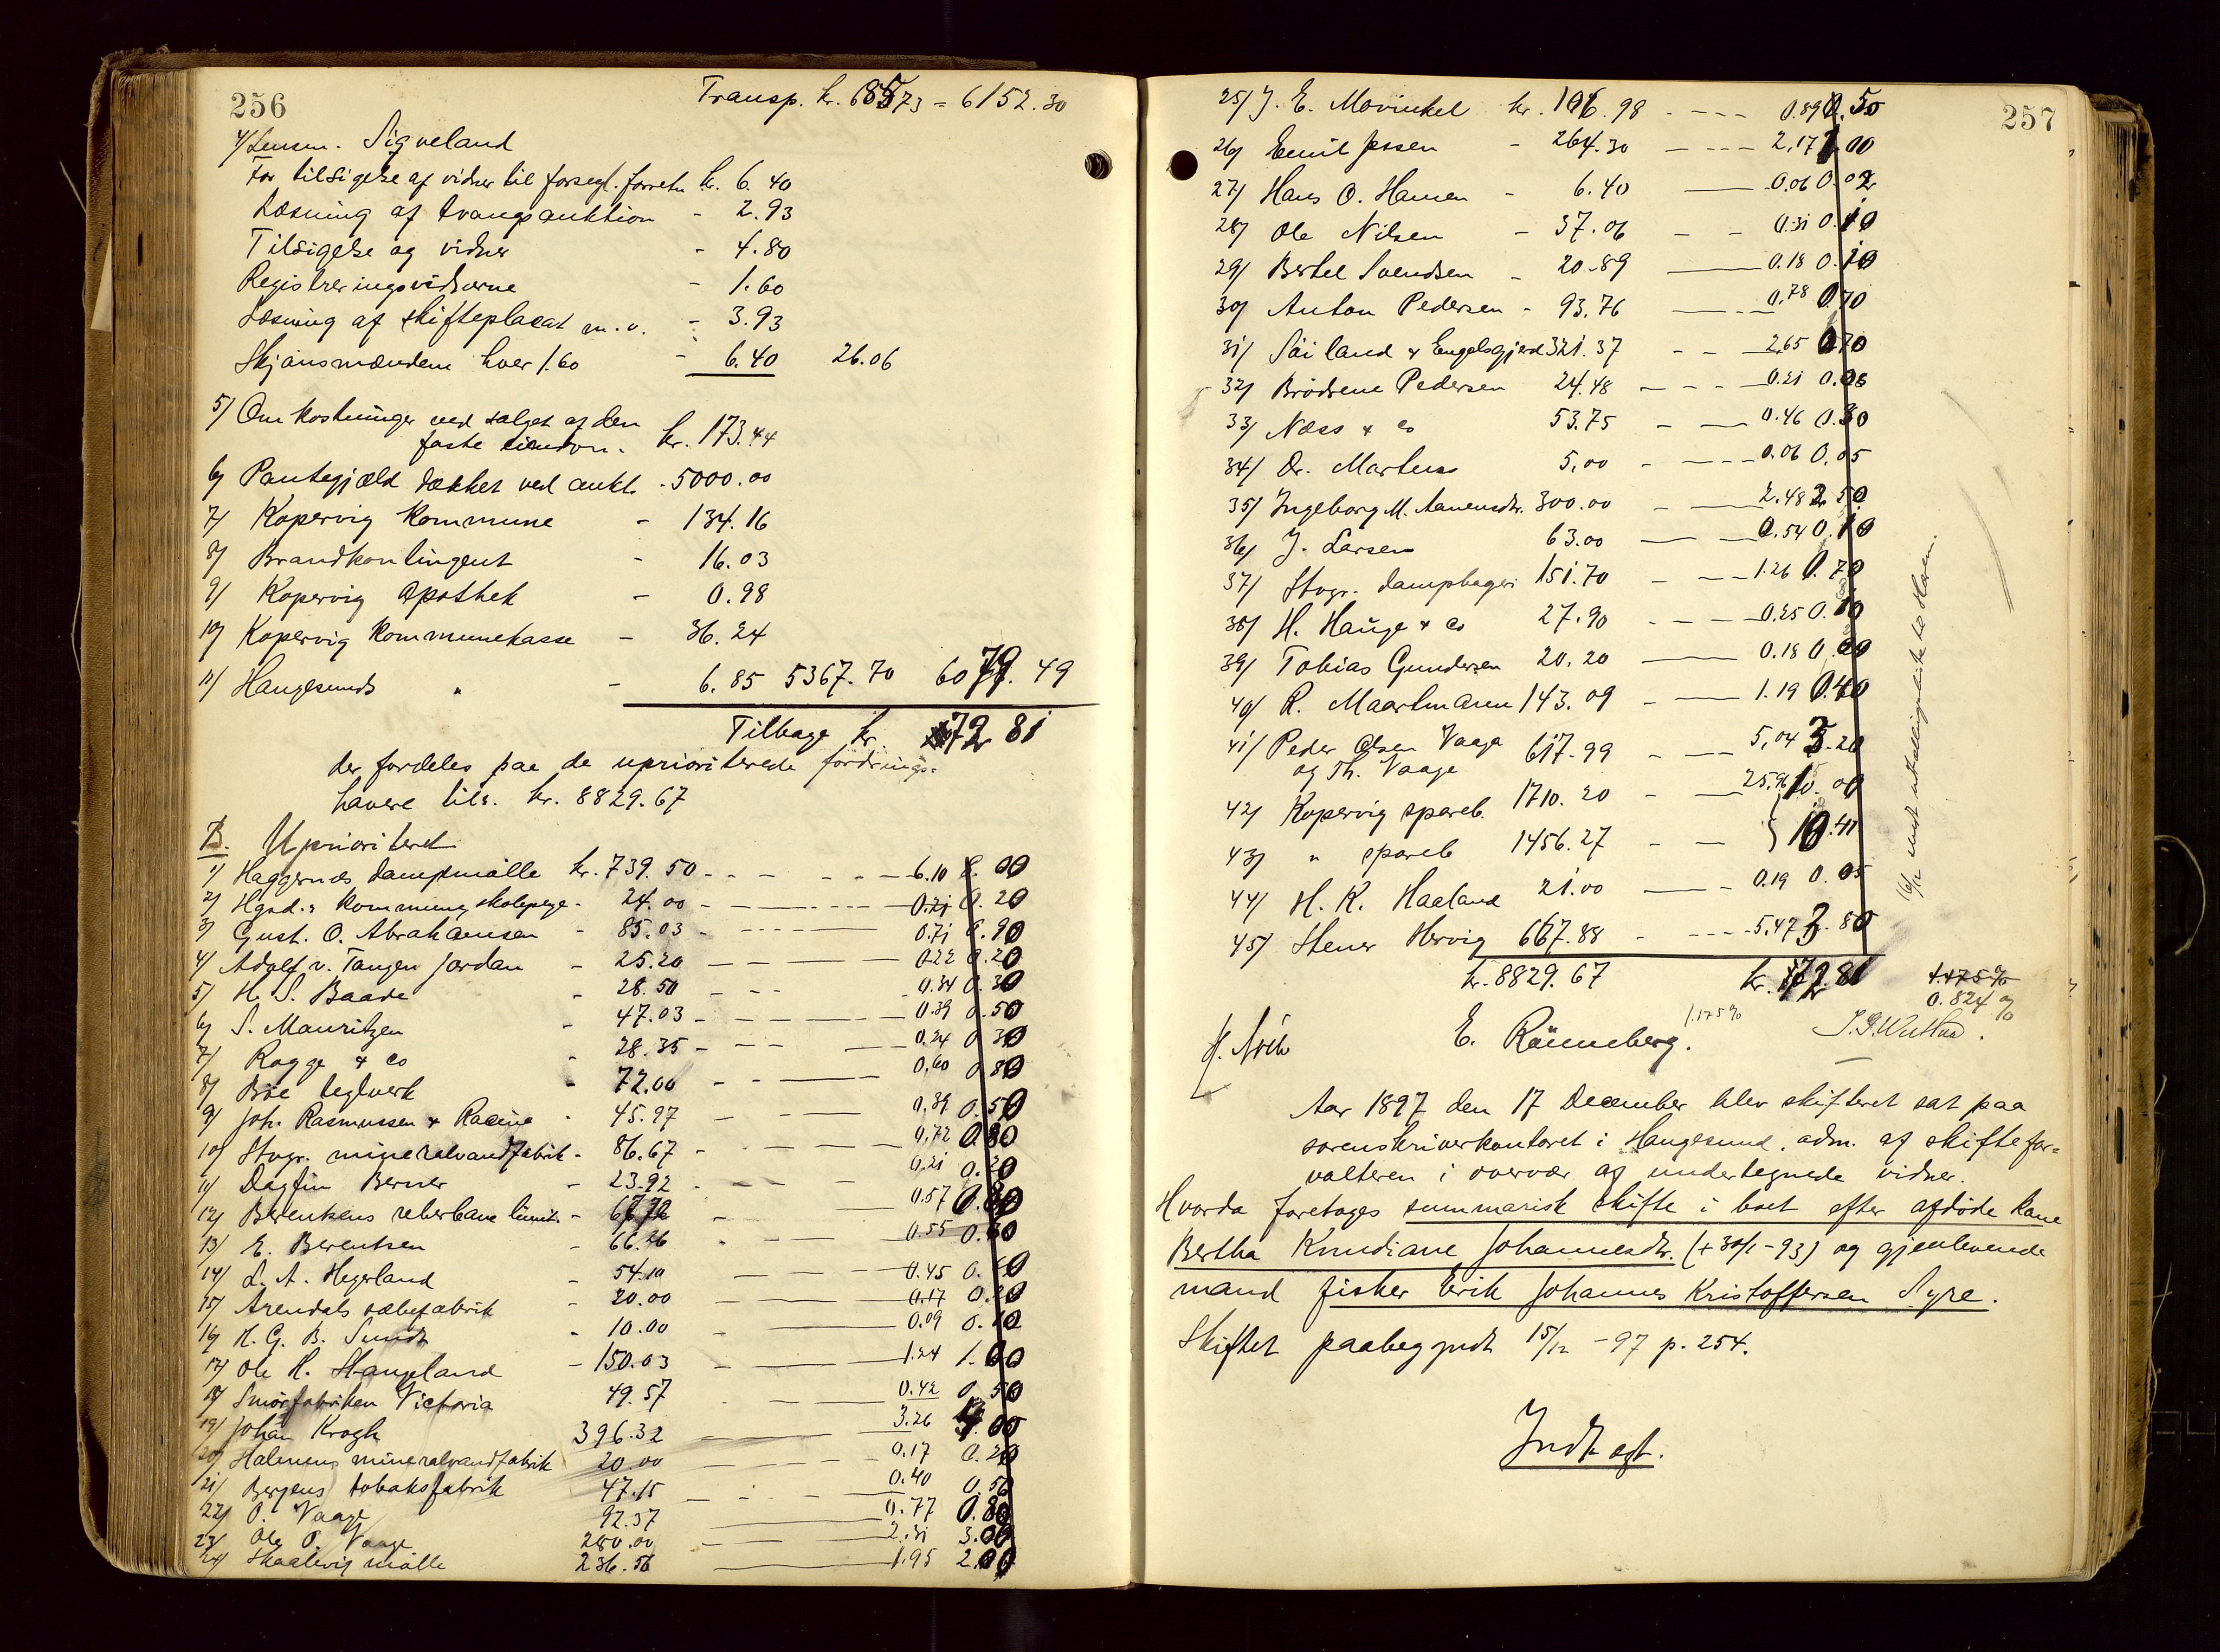 256
Transp. kr. 685.73 = 6152.30
4/ Lensm. Sigveland
For tilsigelse af vidner til forsegl. forretn kr. 6.40
Læsning af tvangsauktion - 2.93
Tilsigelse og vidner - 4.80
Registreringsvidnerne - 1.60
Læsning af skifteplacat m.v. - 3.93
Skjønsmændene hver 1.60 - 6.40 26.06
5/ Omkostninger ved salget af den
faste eiendom. kr. 173.44
6/ Pantegjæld dækket ved aukt. - 5000.00
7/ Kopervig kommune - 134.16
8/ Brandkontingent - 16.03
9/ Kopervig apothek - 0.98
10/ Kopervig kommunekasse - 36.24
11/ Haugesunds " - 6.85 5367.70 6079.49
Tilbage kr. 72 81
der fordeles paa de uprioriterede fordrings-
havere tils. kr. 8829.67
B. Uprioriteret
1/ Haggernæs dampmølle kr. 739.50 - - - 6.10 8.00
2/ Hgsd.s kommunes skolepenge - 24.00 - - - 0.21 0.20
3/ Gust. O. Abrahamsen - 85.03 - - - 0.71 0.90
4/ Adolf v. Tangen Jordan - 25.20 - - - 0.22 0.20
5/ H. S. Baade - 28.50 - - - 0.34 0.30
6/ S. Mauritzen - 47.03 - - - 0.39 0.50
7/ Rogge & Co - 28.35 - - - 0.24 0.30
8/ Bøe teglverk - 72.00 - - - 0.60 0.80
9/ Joh. Rasmussen & Racine - 45.97 - - - 0.39 0.50
10/ Stvgr. mineralvandfabrik - 86.67 - - - 0.72 0.80
11/ Dagfin Berner - 23.92 - - - 0.21 0.20
12/ Berentsens reberbane - 67.72 - - - 0.57 0.80
13/ E. Berentsen - 66.26 - - - 0.55 0.60
14/ L. A. Hegerland - 54.10 - - - 0.45 0.
15/ Arendals sæbefabrik - 20.00 - - - 0.17 0.20
16/ H. G. B. Sundt - 10.00 - - - 0.09 0.10
17/ Ole H. Haugeland - 150.03 - - - 1.24 1.00
18/ Smørfabriken Victoria 49.57 - - - 0.42 0.50
19/ Johan Krogh 396.32 - - - 3.26 4.00
20/ Halmens mineralvandfabrik 20.00 - - - 0.17 0.20
21/ Bergens tobaksfabrik 47.15 - - - 0.40 0.50
22/ O. Vaage 92.37 - - - 0.77 0.80
23/ Ole O. Vaage 280.00 - - - 2.31 3.00
24/ Skaalevig mølle 236.56 - - - 1.95 2.00
257
25/ J. E. Mowinkel kr. 106.98 - - - 0.89 0.50
26/ Emil Jessen - 264.30 - - - 2.17 1.00
27/ Hans O. Hansen - 6.40 - 0.06 0.02
28/ Ole Nilsen - 37.06 - - 0.31 0.10
29/ Bertel Svendsen - 20.89 - 0.18 0.10
30/ Anton Pedersen - 93.76 - - 0.78 0.70
31/ Søiland & Engelsgjerd 321.37 - - 2.65 0.70
32/ Brødrene Pedersen 24.48 - - - 0.21 0.06
33/ Næss & Co 53.75 - - 0.46 0.30
34/ Dr. Martens 5.00 - - - 0.06 0.05
35/ Ingeborg M. Aanensdtr. 300.00 - - 2.48 2.50
36/ J. Larsen 63.00 - - 0.54 0.10
37/ Stvgr. dampbageri 151.70 - - - 1.26 0.70
38/ H. Hauge & Co 27.90 - - - 0.25 0.10
39/ Tobias Gundersen 20.20 - 0.18 0.20
40/ R. Maartmann 143.09 - - 1.19 0.40
41/ Peder Olsen Vaage
og Th. Vaage 617.99 - - 5.04 3.20
42/ Kopervig spareb. 1710.20 - - 25.96 10.00
43/ " spareb 1456.27 - - } 10.41
44/ H. K. Haaland 21.00 - - 0.19 0.05
45/ Stener Hervig 667.88 - - - 5.47 3.80
kr. 8829.67 kr. 72.81 1.175%
0.824 %
1.175%
E. Rønneberg.
Aar 1897 den 17 December blev skifteret sat paa
sorenskriverkontoret i Haugesund, adm. af skiftefor-
valteren i overvær af undertegnede vidner.
Hvorda foretoges summarisk skifte i boet efter afdøde kone
Bertha Knudiane Johannesdtr. (+ 30/1-93) og gjenlevende
mand fisker Erik Johannes Kristoffersen Syre.
Skiftet paabegyndt 15/12 -97 p. 254.
Indtægt.